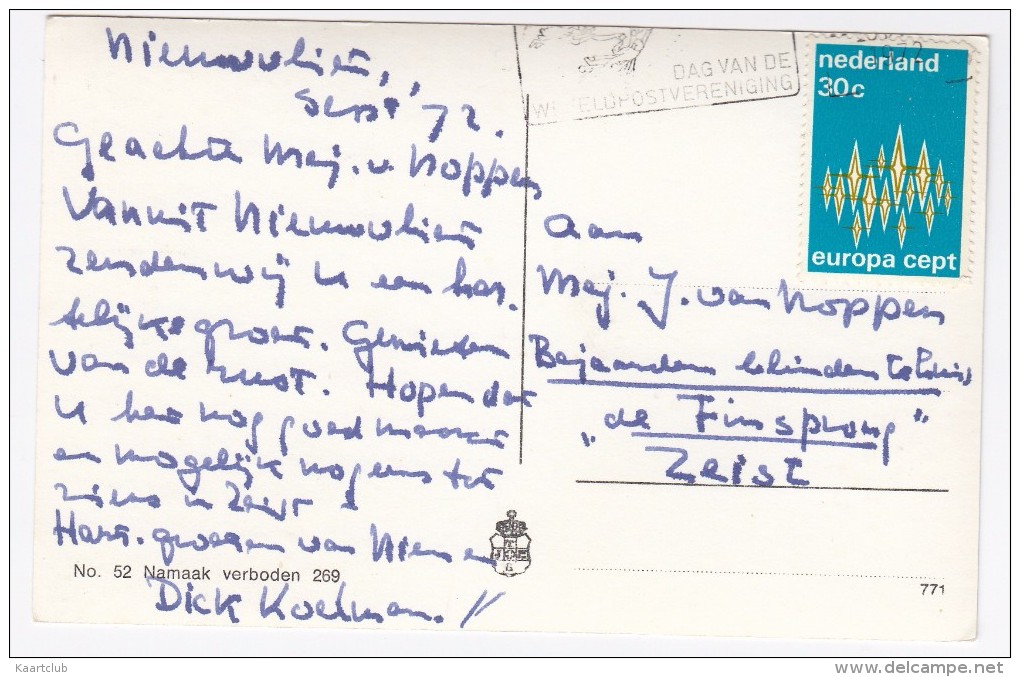 Nieuwvliet,
Sept '72.
Geachte Mej. v Noppen
Vanuit Nieuwvliet
zenden wij U een har-
telijke groet. Genieten
van de rust. Hopen dat
U het nog goed maakt
en mogelijk nog eens tot
ziens in Zeist.
Hart. groeten van Mien en
Dick Koelman.
No. 52 Namaak verboden 269
DAG VAN DE
WERELDPOSTVERENIGING
1972
nederland
30c
europa cept
Aan
Mej. J. van Noppen
Bejaarden blinden tehuis
"de
Zeist
771
Kaartclub
www.delcampe.net